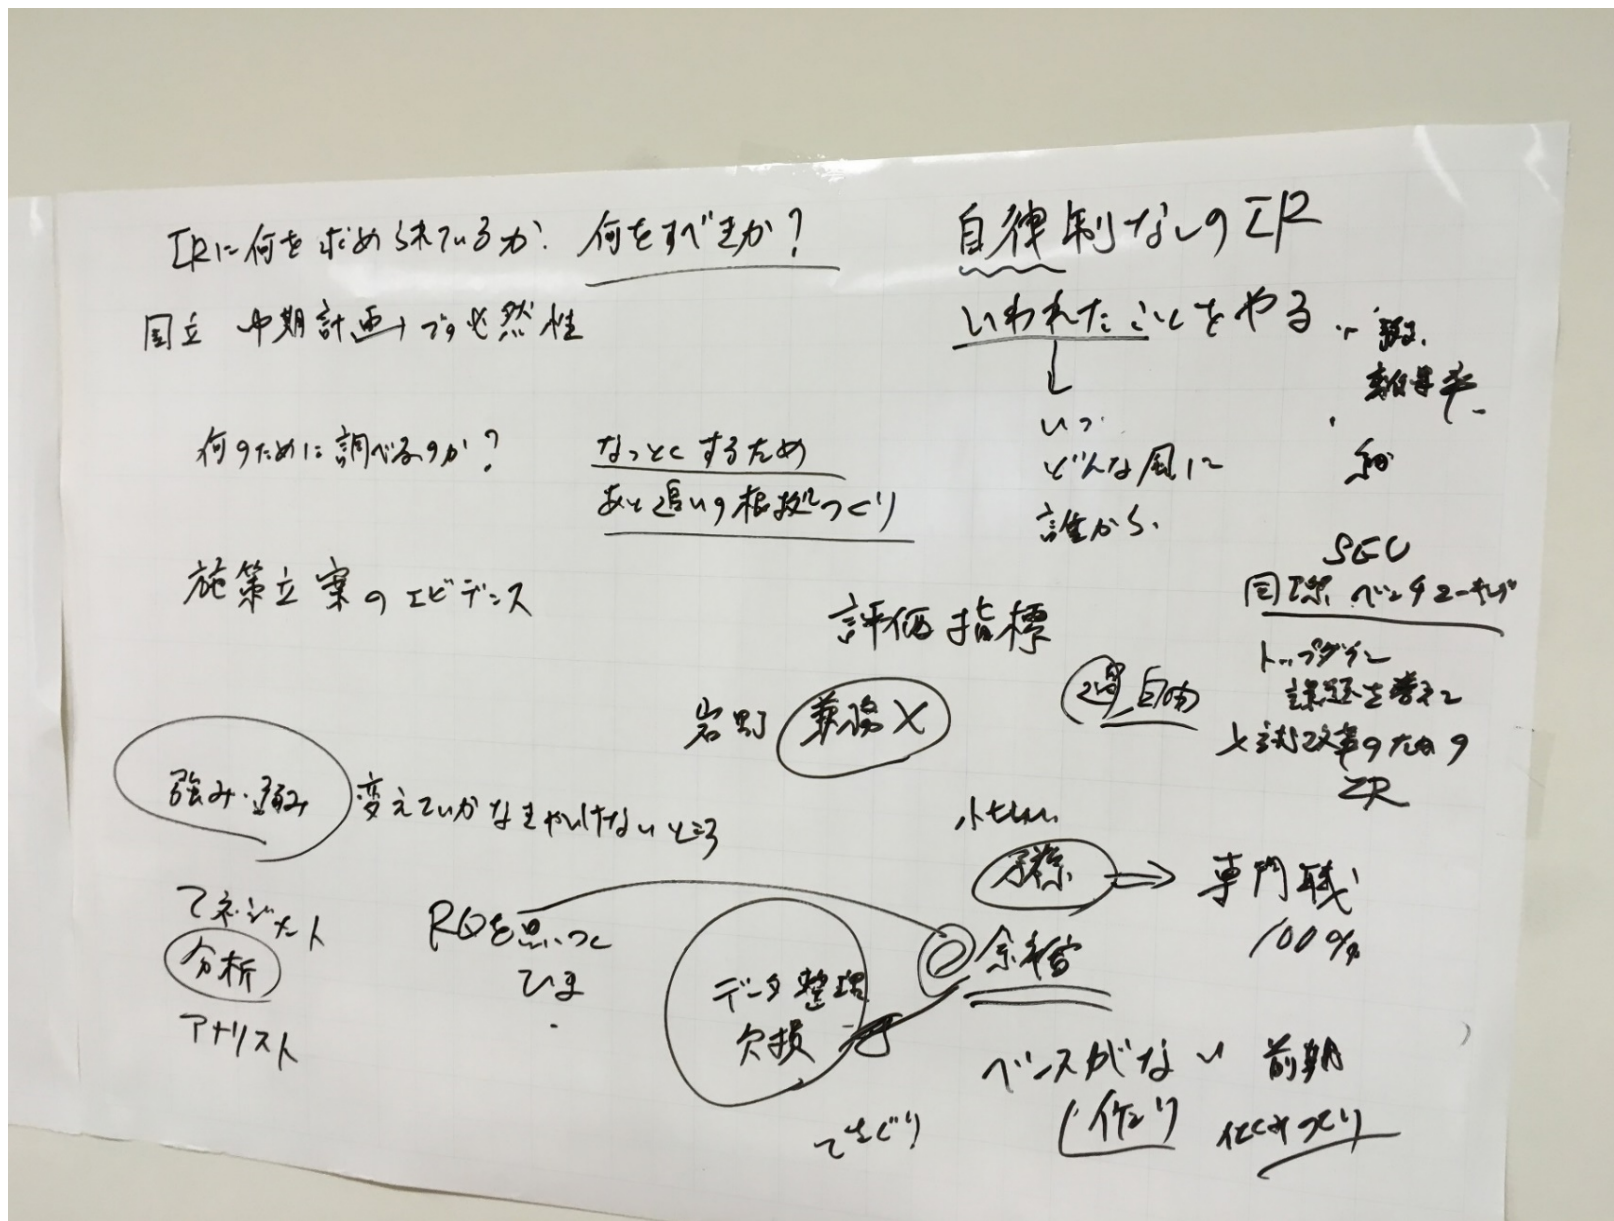 IRに何を求められているか. 何をすべきか?
国立 中期計画 必然性
何のために調べるのか?
なっとくするため
あと追いの根拠づくり
施策立案のエビデンス
強み・弱み 変えていかなきゃいけないところ
マネジメント
分析
アナリスト
RQを思いつく
ひま
データ整理
欠損
てさぐり
評価指標
兼務 X
自律 制なしのIR
いわれたことをやる
いつ
どんな風に
誰から.
SGU
国際 ベンチマーキング
トップダウン
課題を考えて
入試改革のための
IR
自由
専門職
100%
余裕
ベースがない 前期
作り
しくみづくり